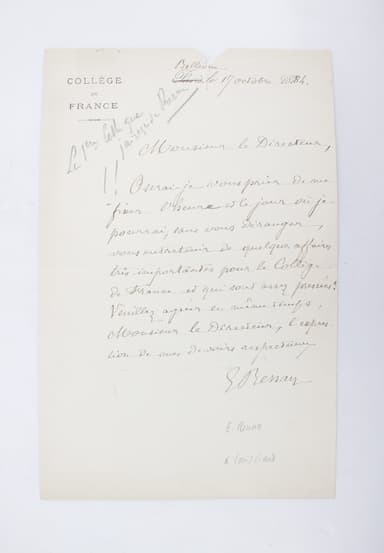 COLLÈGE
DE
FRANCE
Bellevue
le 17 octobre 1884.
La 1ère lettre que
j'ai reçue de Renan
!!
Monsieur le Directeur,
Oserai-je vous prier de me
fixer l'heure et le jour où je
pourrai, sans vous déranger,
vous entretenir de quelques affaires
très importantes pour le Collège
de France et qui sont assez pressées?
Veuillez agréer en même temps,
Monsieur le Directeur, l'expres
sion de mes devoirs respectueux
E Renan
E. Renan